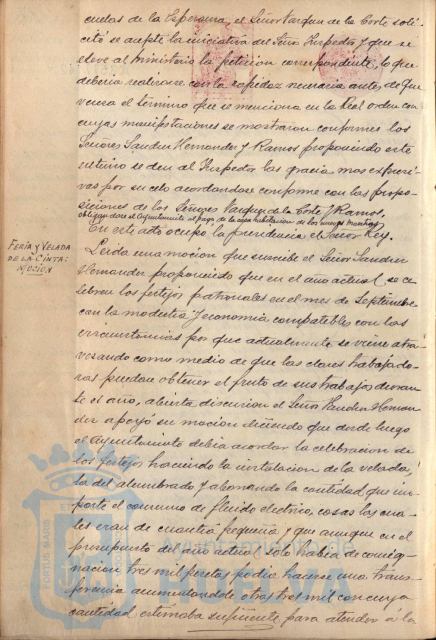 cuelas de la Esperanza, el Señor Vazquez de la Corte soli-
citó se acepte la iniciativa del Señor Inspector y que se
eleve al Ministerio la peticion correspondiente, lo que
deberia realizarse con la rapidez necesaria antes de que
venza el termino que se menciona en la Real orden con
cuyas manifestaciones se mostraron conformes los
Señores Sanchez Hernandez y Ramos proponiendo este
ultimo se den al Inspector las gracias mas expresi-
vas por su celo acordandose conforme con las propo-
siciones de los Señores Vazquez de la Corte y Ramos,
obligandose el Ayuntamiento al pago de la casa habitacion de los nuevos maestros
En este acto ocupó la presidencia el Señor Rey.
FERIA Y VELADA
DE LA CINTA:
MOCION
Leida una mocion que suscribe el Señor Sanchez
Hernandez proponiendo que en el año actual se ce-
lebren los festejos patronales en el mes de Septiembre
con la modestia y economia compatibles con las
circunstancias por que actualmente se viene atra-
vesando como medio de que las clases trabajado-
ras puedan obtener el fruto de sus trabajos duran-
te el año, abierta discusion el Señor Sanchez Hernan-
dez apoyó su mocion diciendo que desde luego
el Ayuntamiento debia acordar la celebracion de
los festejos haciendo la instalacion de la velada,
la del alumbrado y abonando la cantidad que im-
porte el consumo de fluido electrico, cosas las cua-
les eran de cuantia pequeña y que aunque en el
presupuesto del año actual solo habia de consig-
nacion tres mil pesetas podia hacerse una trans-
ferencia aumentandole otras tres mil con cuya
cantidad estimaba suficiente para atender á la
PORTUS MARIS ET
Ayuntamiento de